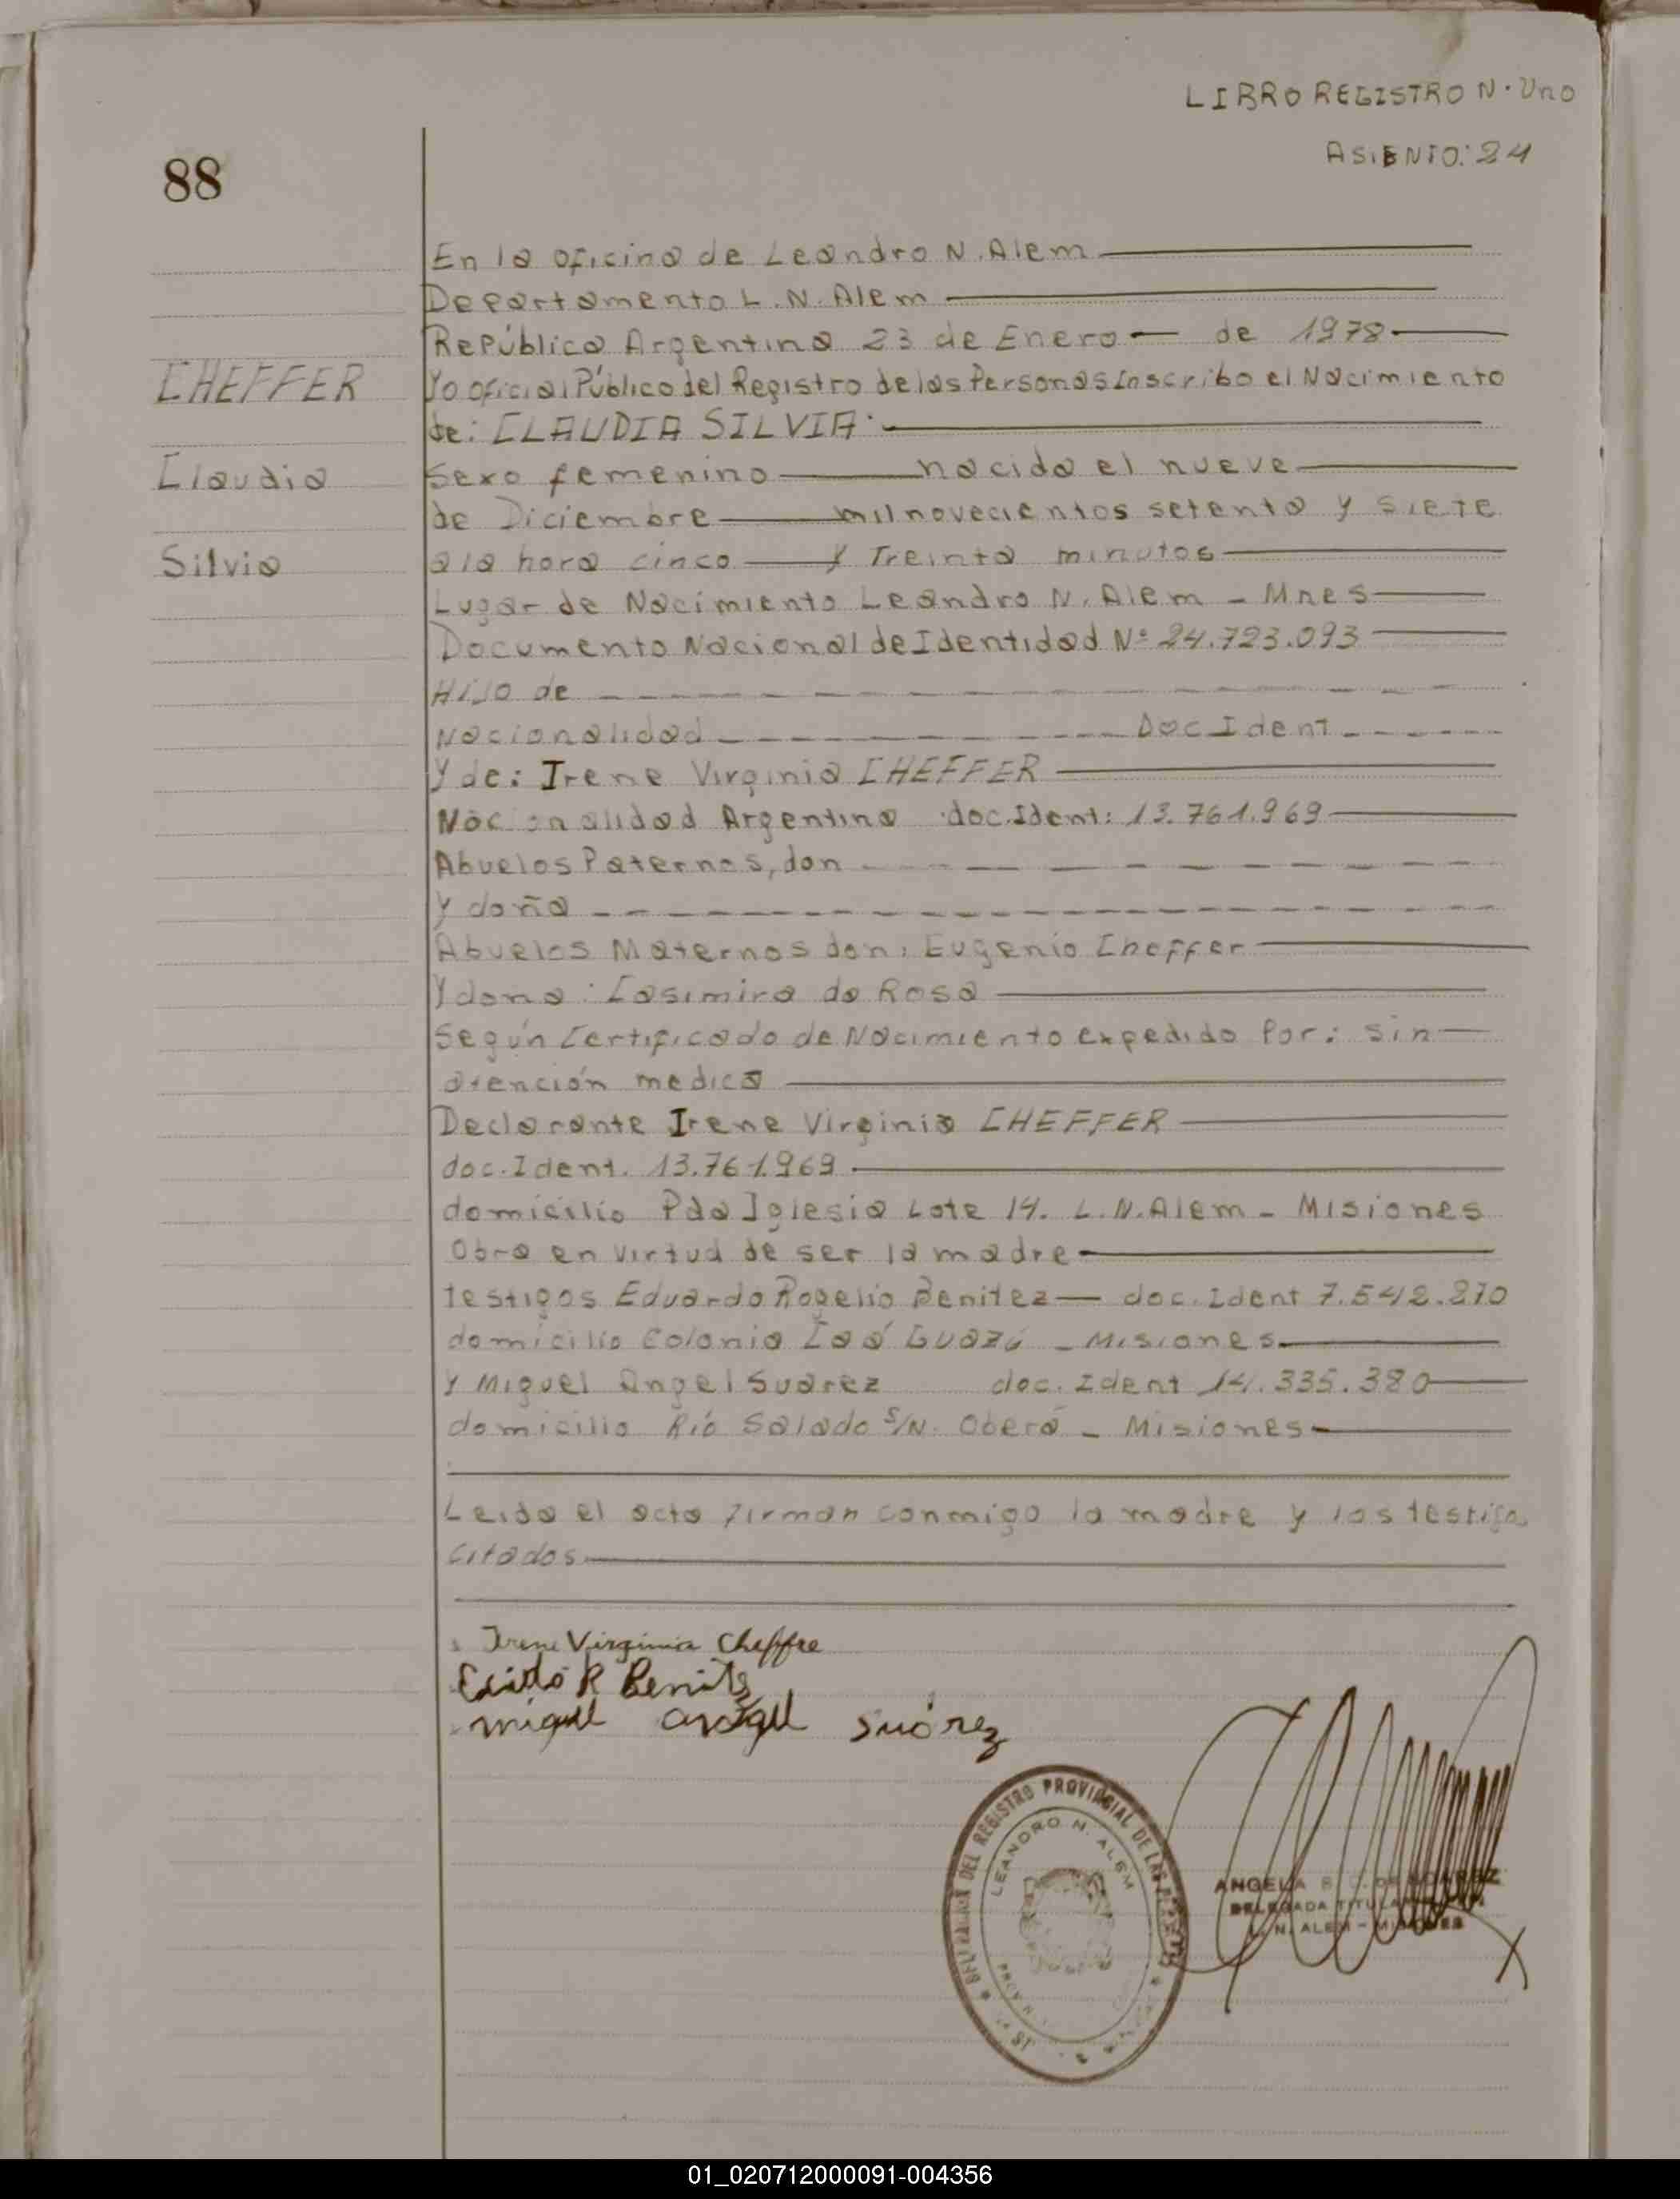 LIBRO REGISTRO N. Uno
ASIENTO: 24
88
En la oficina de Leandro N. Alem
Departamento L. N. Alem
República Argentina 23 de Enero de 1978
CHEFFER
Yo oficial Público del Registro de las Personas inscribo el Nacimiento
de: CLAUDIA SILVIA
Claudia
Sexo femenino nacida el nueve
de Diciembre mil novecientos setenta y siete
Silvia
a la hora cinco y Treinta minutos
Lugar de Nacimiento Leandro N. Alem - Mnes
Documento Nacional de Identidad Nº 24.723.093
Hijo de
Nacionalidad Doc Ident
Y de: Irene Virginia CHEFFER
Nacionalidad Argentina doc. Ident: 13.761.969
Abuelos Paternos, don
Y doña
Abuelos Maternos don: Eugenio Cheffer
Y dona: Casimira da Rosa
Según Certificado de Nacimiento expedido Por: sin
atención medica
Declarante Irene Virginia CHEFFER
doc. Ident. 13.761.969
domicilio Pda Iglesia Lote 14. L.N. Alem - Misiones
Obra en virtud de ser la madre
testigos Eduardo Rogelio Benitez doc. Ident 7.542.870
domicilio Colonia Caá Guazú - Misiones
Y Miguel Angel Suarez doc. Ident 14.335.380
domicilio Río Salado S/N. Oberá - Misiones
Leida el acta firman conmigo la madre y los testigos
citados
Irene Virginia Cheffre
R Benitz
miguel angel suárez
DELEGACION DEL REGISTRO PROVINCIAL DE LAS PERSONAS
LEANDRO N. ALEM
ANGELA
DELEGADA TITULAR
L. N. ALEM - MISIONES
01_020712000091-004356